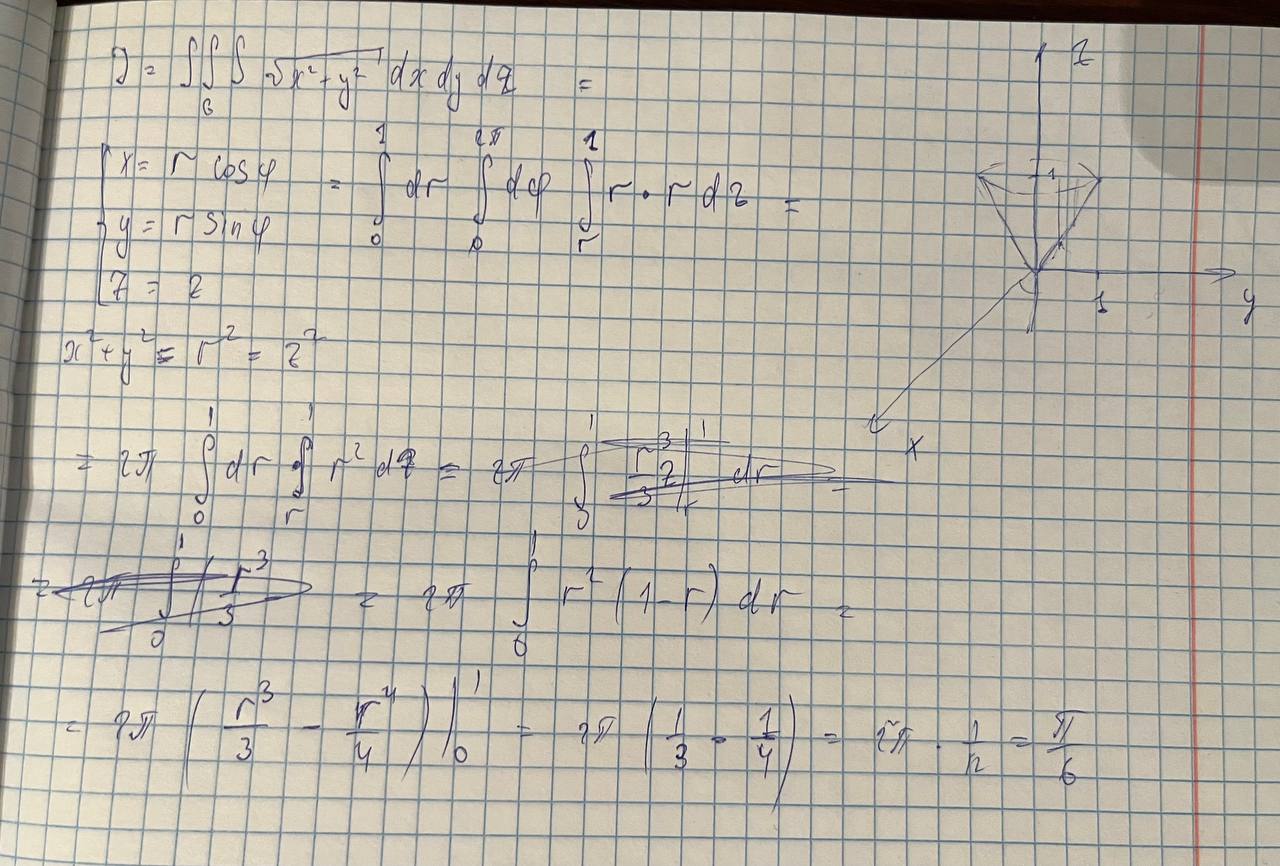 J = ∫∫∫_G √(x²+y²) dx dy dz =
{ x = r cos φ = ∫₀¹ dr ∫₀^{2π} dφ ∫ᵣ¹ r · r dz =
y = r sin φ
z = z
x² + y² = r² = z²
= 2π ∫₀¹ dr ∫ᵣ¹ r² dz = 2π ∫₀¹ r³/3 z |ᵣ¹ dr =
= 2π ∫₀¹ ( r³/3 = 2π ∫₀¹ r² (1 - r) dr =
= 2π ( r³/3 - r⁴/4 ) |₀¹ = 2π ( 1/3 - 1/4 ) = 2π · 1/12 = π/6
z
1
1
y
x